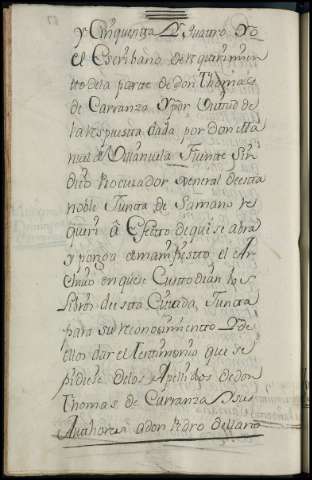 y Cinquenta y quatro Yo
el Escribano de requerimien
tto dela parte de don Thomas
de Carranza y por Virtud de
la respuesta dada por don Ma
nuel de Villanuela Fuente Sin
dico Procurador General de esta
noble Juncta de Samano re
queri â Efecto de que si abra
y ponga de manifiestto, el Ar
chivo en que se Custtodian los
Libros de estta Cittada, Juncta
para su reconocimientto Y de
ellos dar el Testimonio que se
pidiese delos Apellidos de don
Thomas de Carranza Y sus
Authores a don Pedro de Llano